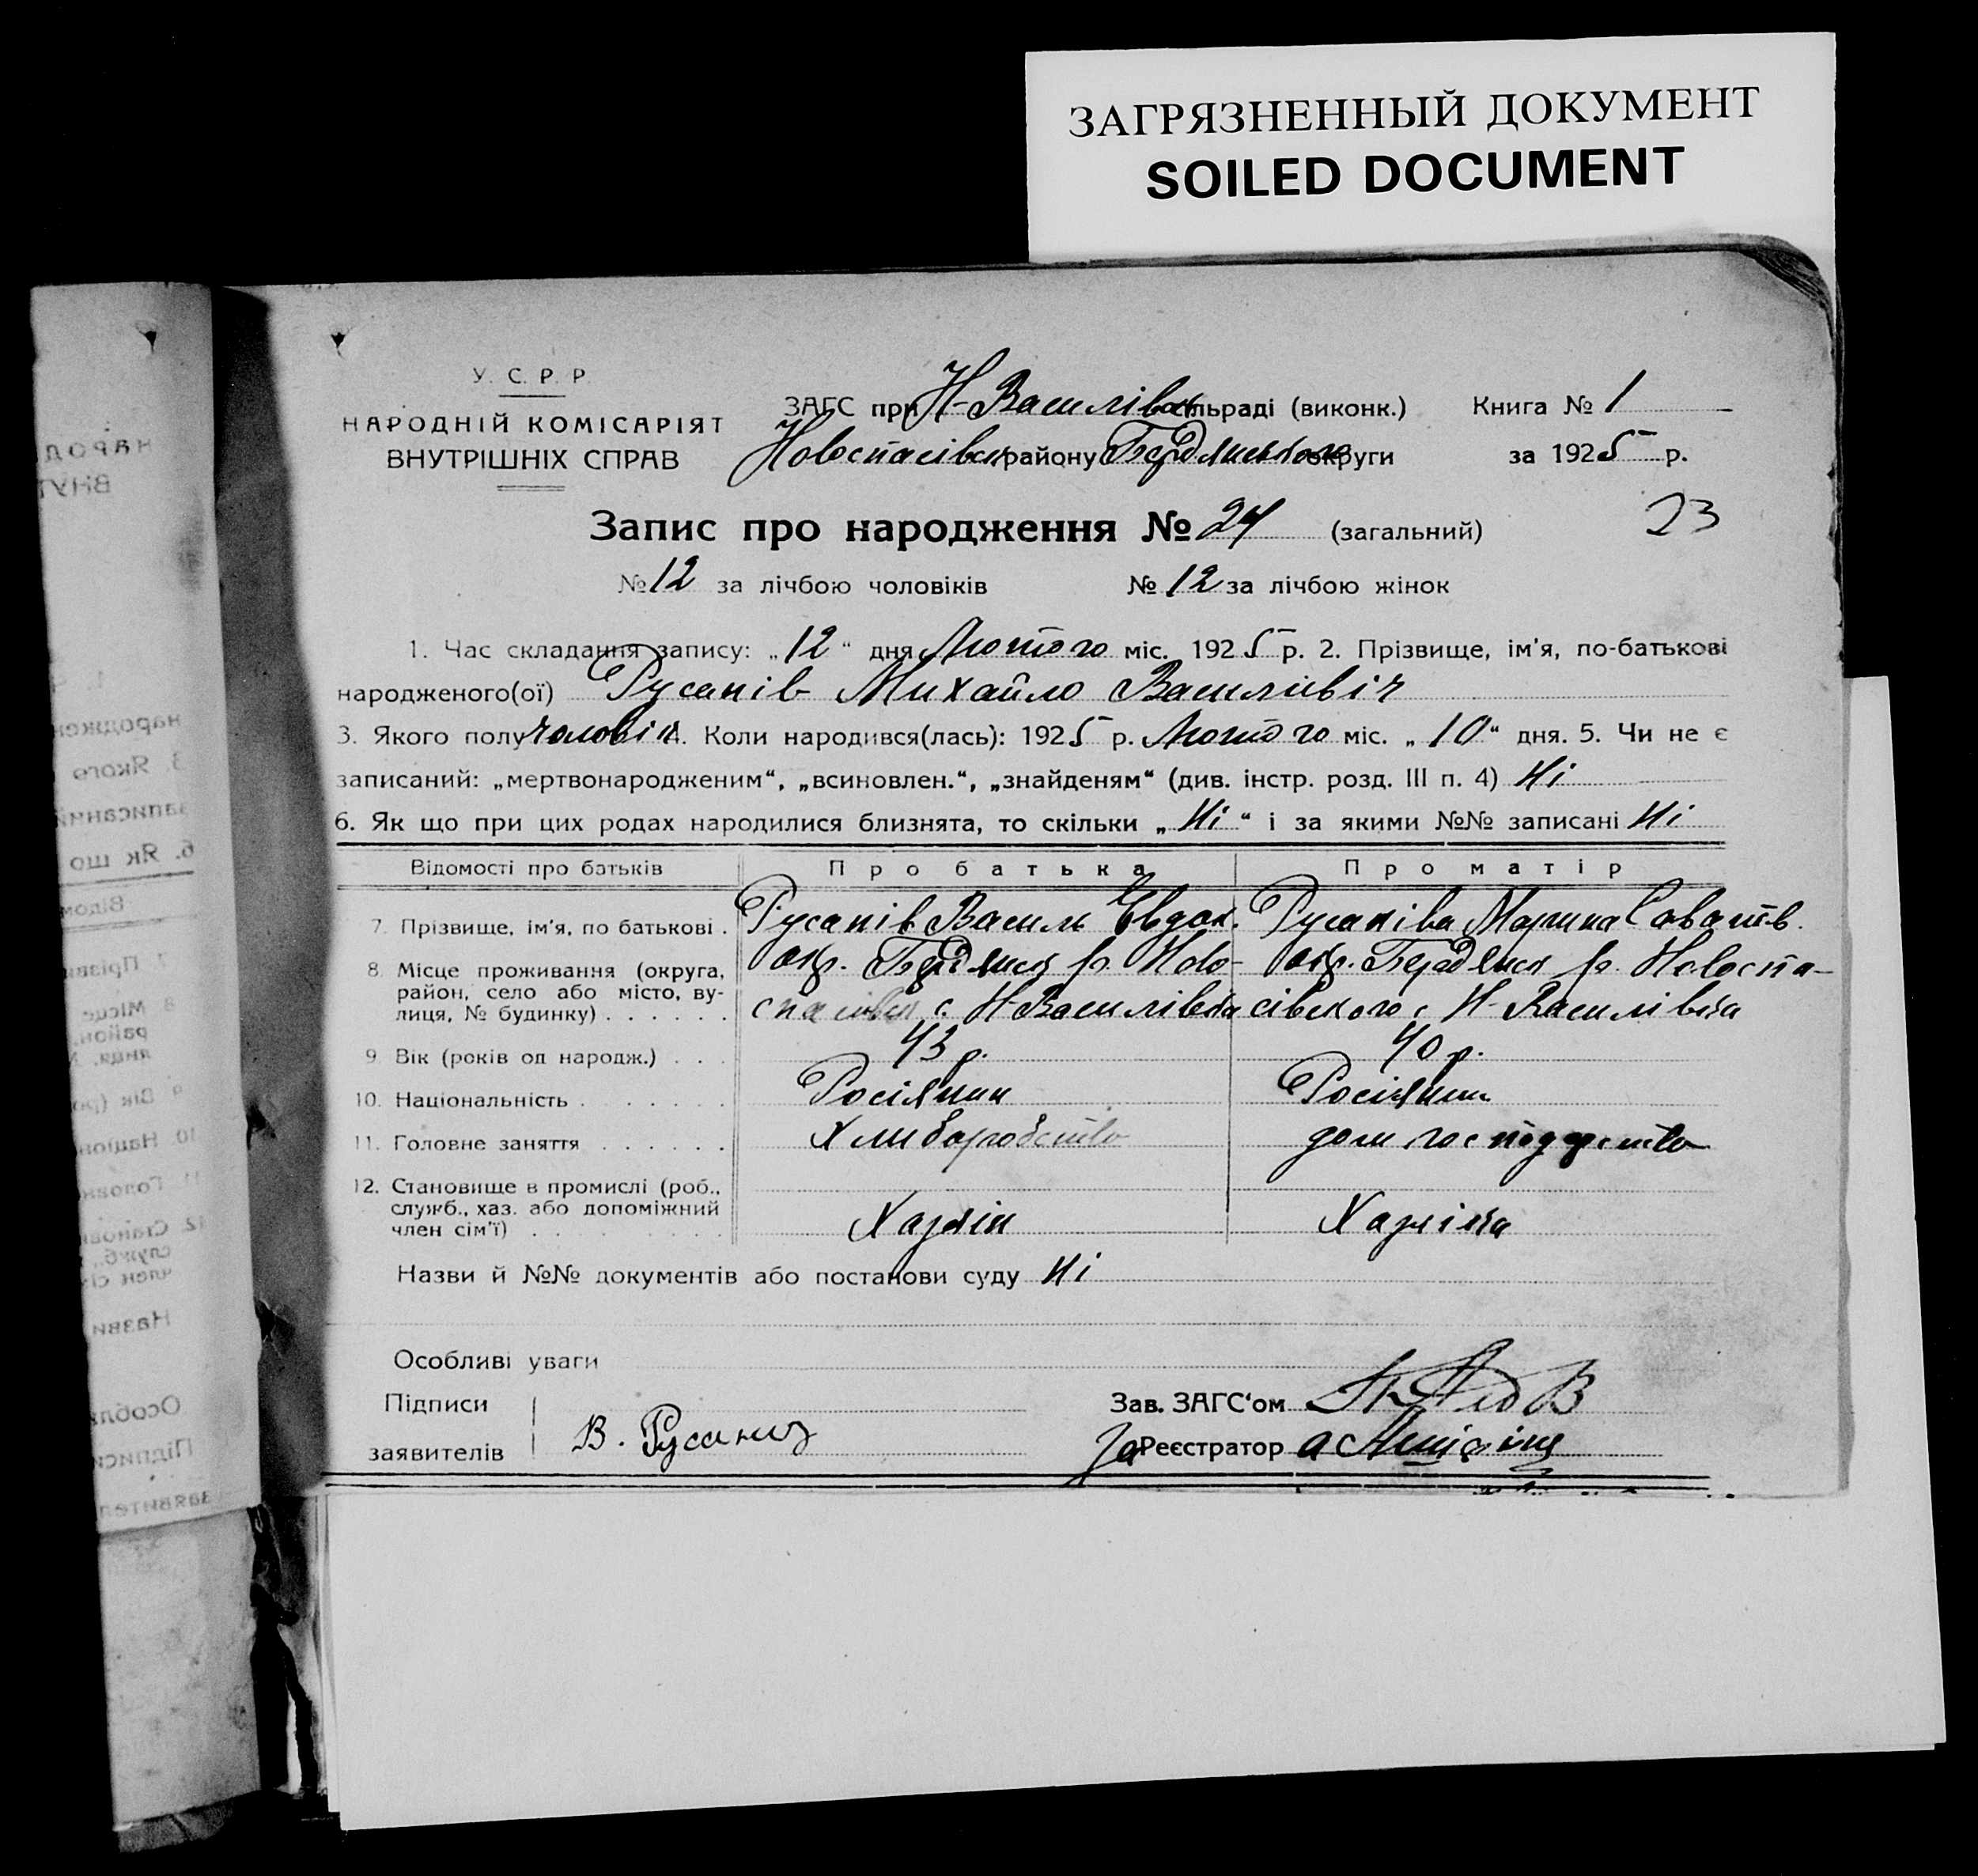 ЗАГРЯЗНЕННЫЙ ДОКУМЕНТ
SOILED DOCUMENT
У. С. Р. Р.
НАРОДНІЙ КОМІСАРІЯТ
ВНУТРІШНІХ СПРАВ
ЗАГС при Н-Василівськ сільраді (виконк.) Книга № 1
Новоспасівськ району Бердянського округи за 1925 р.
Запис про народження № 24 (загальний) 23
№ 12 за лічбою чоловіків № 12 за лічбою жінок
1. Час складання запису: „12“ дня Лютого міс. 1925 р. 2. Прізвище, ім'я, по-батькові
народженого(ої) Русанів Михайло Василівіч
3. Якого полу чоловік 4. Коли народився(лась): 1925 р. Лютого міс. „10“ дня. 5. Чи не є
записаний: „мертвонародженим“, „всиновлен.“, „знайденям“ (див. інстр. розд. III п. 4) Ні
6. Як що при цих родах народилися близнята, то скільки „Ні“ і за якими №№ записані Ні
Відомості про батьків Про батька Про матір
7. Прізвище, ім'я, по батькові . Русанів Василь Евдок. Русаніва Марина Саватів.
8. Місце проживання (округа, район, село або місто, вулиця, № будинку) . . . . . .
окр. Бердянськ р. Ново-
спасівськ с. Н-Василівка
окр. Бердянськ р. Новоспа-
сівского с. Н-Василівка
9. Вік (років од народж.) . . . 43 р. 40 р.
10. Національність . . . . . . . Росіянин Росіянин
11. Головне заняття . . . . . . Хлиборобство дом господарство
12. Становище в промислі (роб., служб., хаз. або допоміжний член сім'ї) . . . . . . . .
Хазяін Хазяіка
Назви й №№ документів або постанови суду Ні
Особливі уваги
Підписи
заявителів В. Русанов
Зав. ЗАГС'ом
За Реєстратор